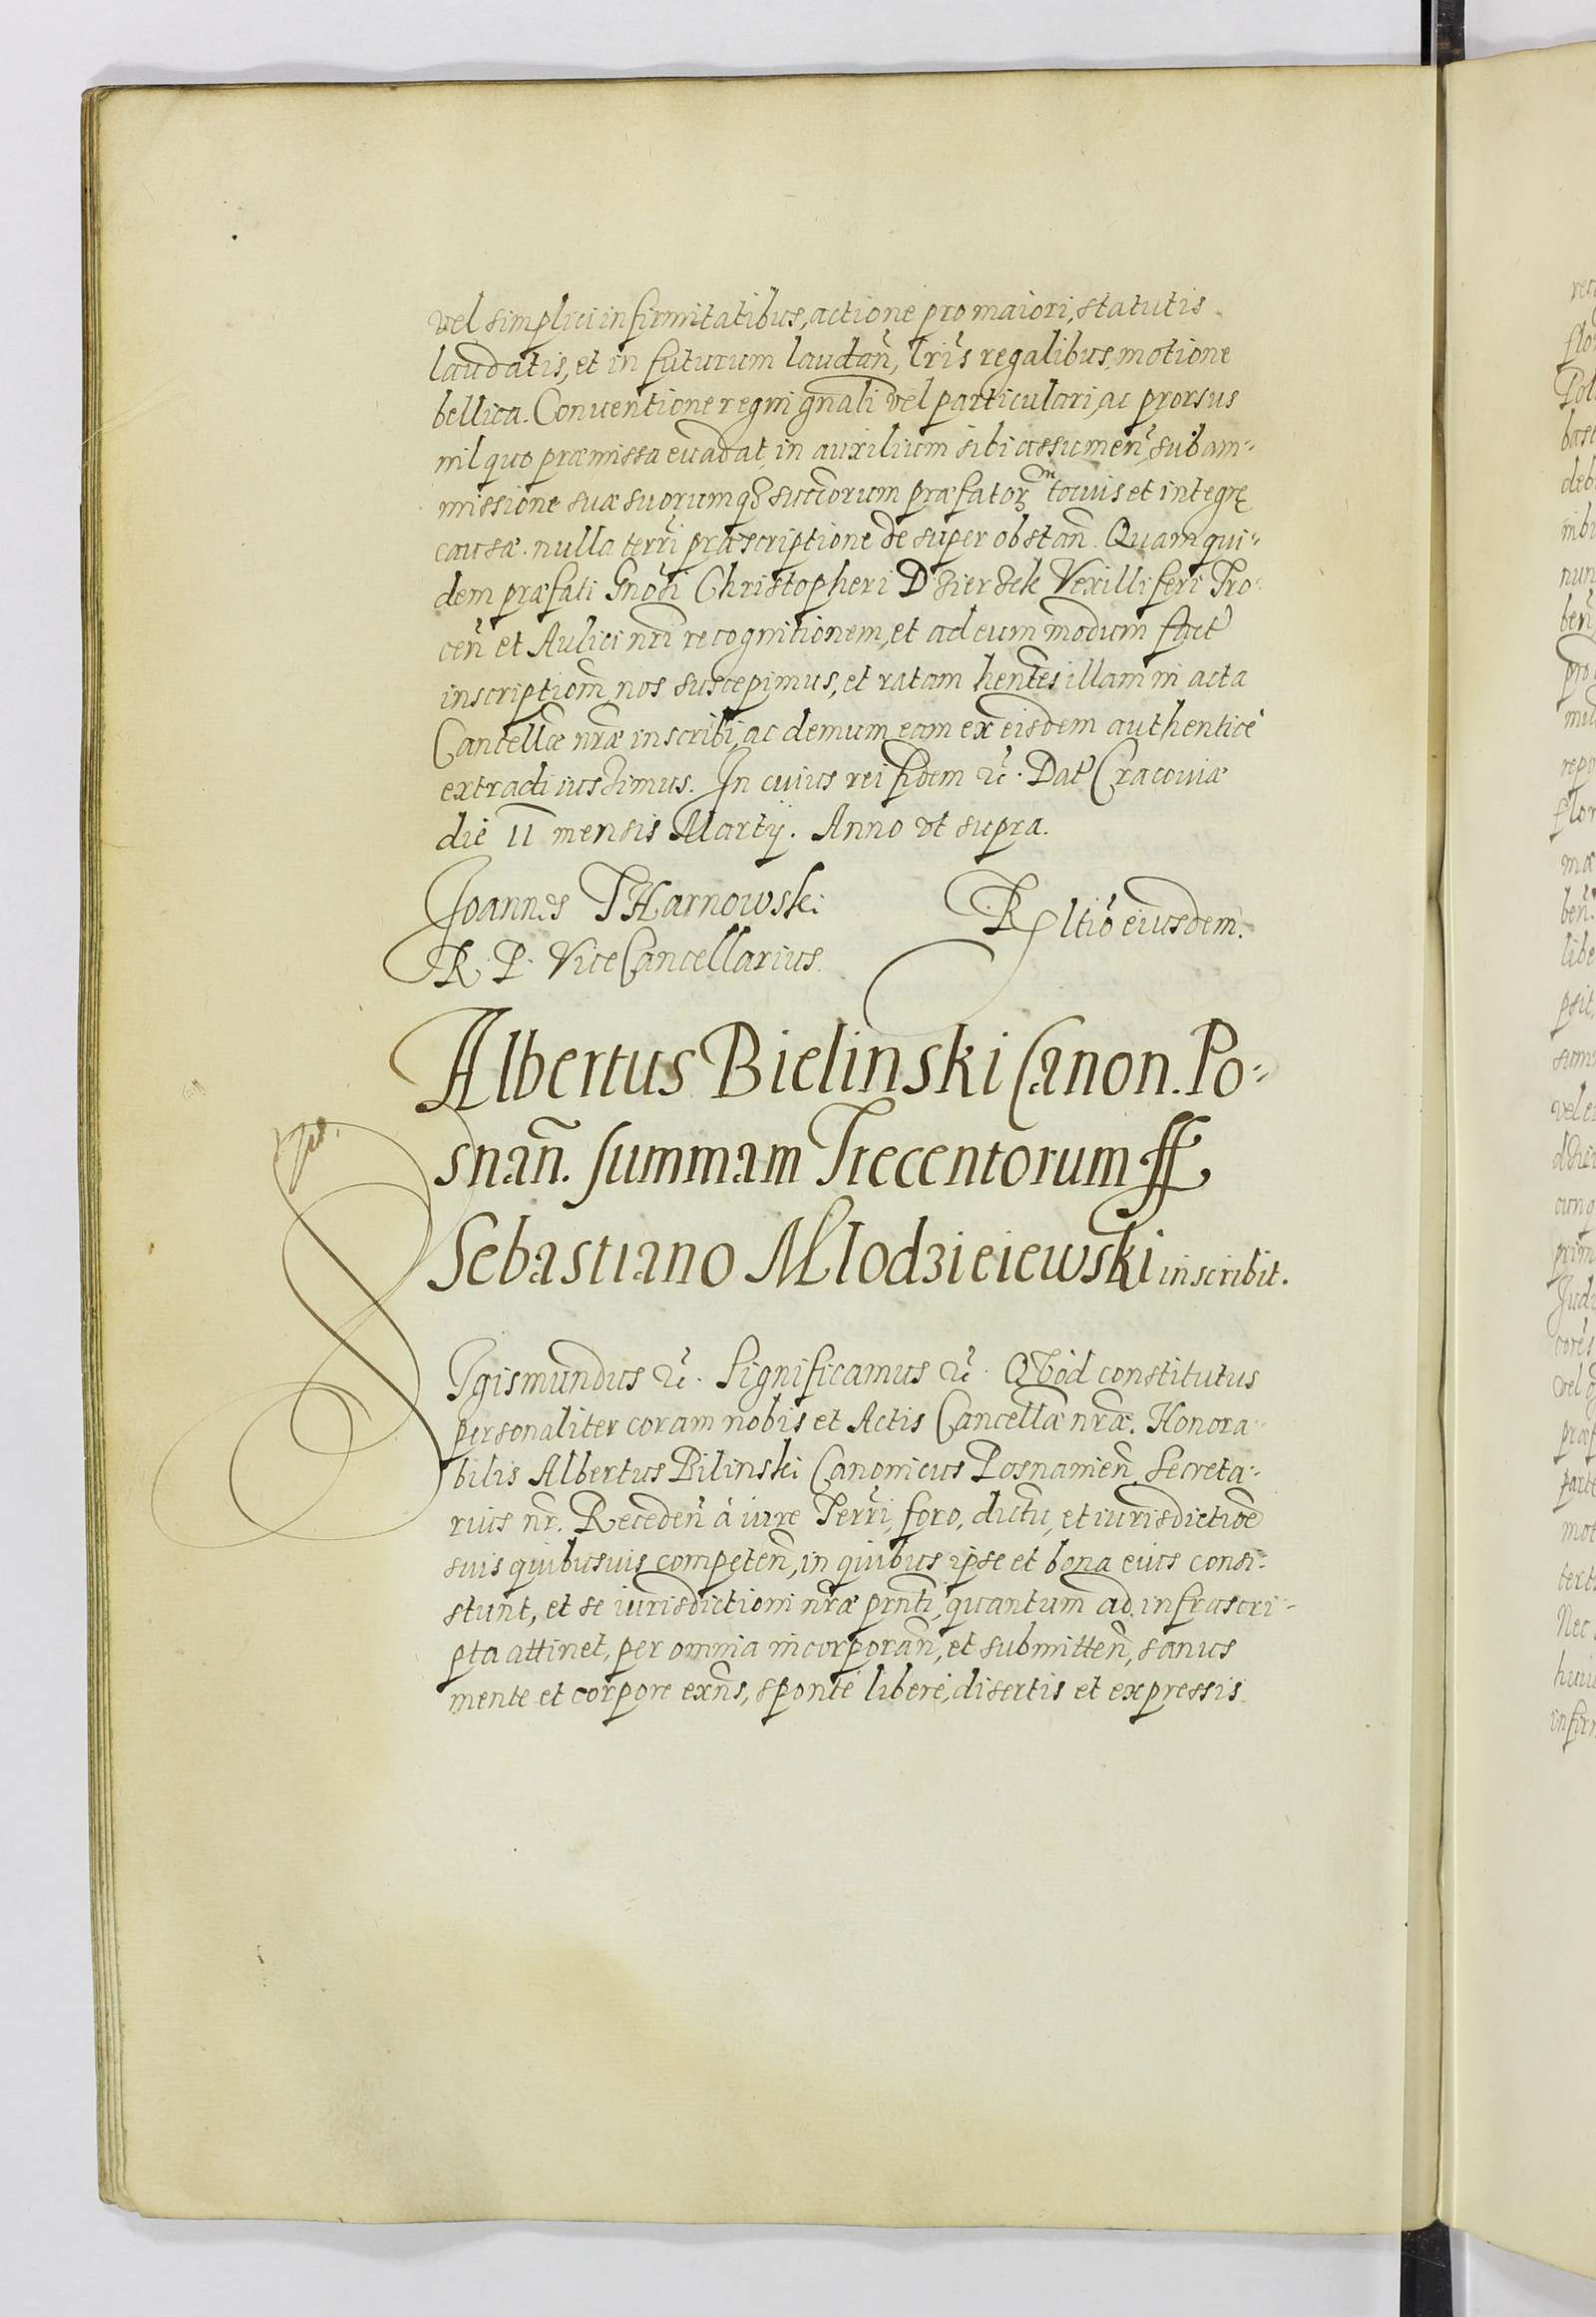 vel simplici infirmitatibus, actione pro maiori, statutis
laudatis, et in futurum laudañ, lrĩs regalibus, motione
bellica. Conventione regni gñali vel particulari, ac prorsus
nil quo præmissa evadat, in auxilium sibi assumeñ, sub am-
missione suæ suorumq₃ succorum præfator totius et integrę
causæ. nulla terrĩ præscriptione de super obstañ. Quam qui-
dem præfati Gnõsi Christopheri Dzierzek Vexilliferi Tro-
ceñ et Aulici nrĩ recognitionem, et ad eum modum fact
inscriptiom̃ nos suscepimus, et ratam hentẽs illam in acta
Cancellæ nræ inscribi, ac demum eam ex eisdem authenticè
extradi iussimus. In cuius rei fidem &c̃. Dat Cracoviæ
die 11 mensis Martij. Anno vt supra.
Joannes THarnowski
R. P. ViceCancellarius.
Rltiõ eiusdem.
Albertus Bielinski Canon. Po-
snañ. summam Trecentorum ff
Sebastiano Mlodzieiewski inscribit.
SIgismundus &c̃. Significamus &c̃. QVòd constitutus
personaliter coram nobis et Actis Cancellæ nræ. Honora-
bilis Albertus Bilinski Canonicus Posnanieñ Secreta-
rius nr̃. Recedeñ à iure Terrĩ, foro, dictũ, et iurisdictioẽ
suis quibusuis competeñ, in quibus ipse et bona eius consi-
stunt, et se iurisdictioni nræ prñti, quantum ad infrascri-
pta attinet, per omnia incorporañ, et submitteñ, sanus
mente et corpore exñs, sponte liberè, disertis et expressis